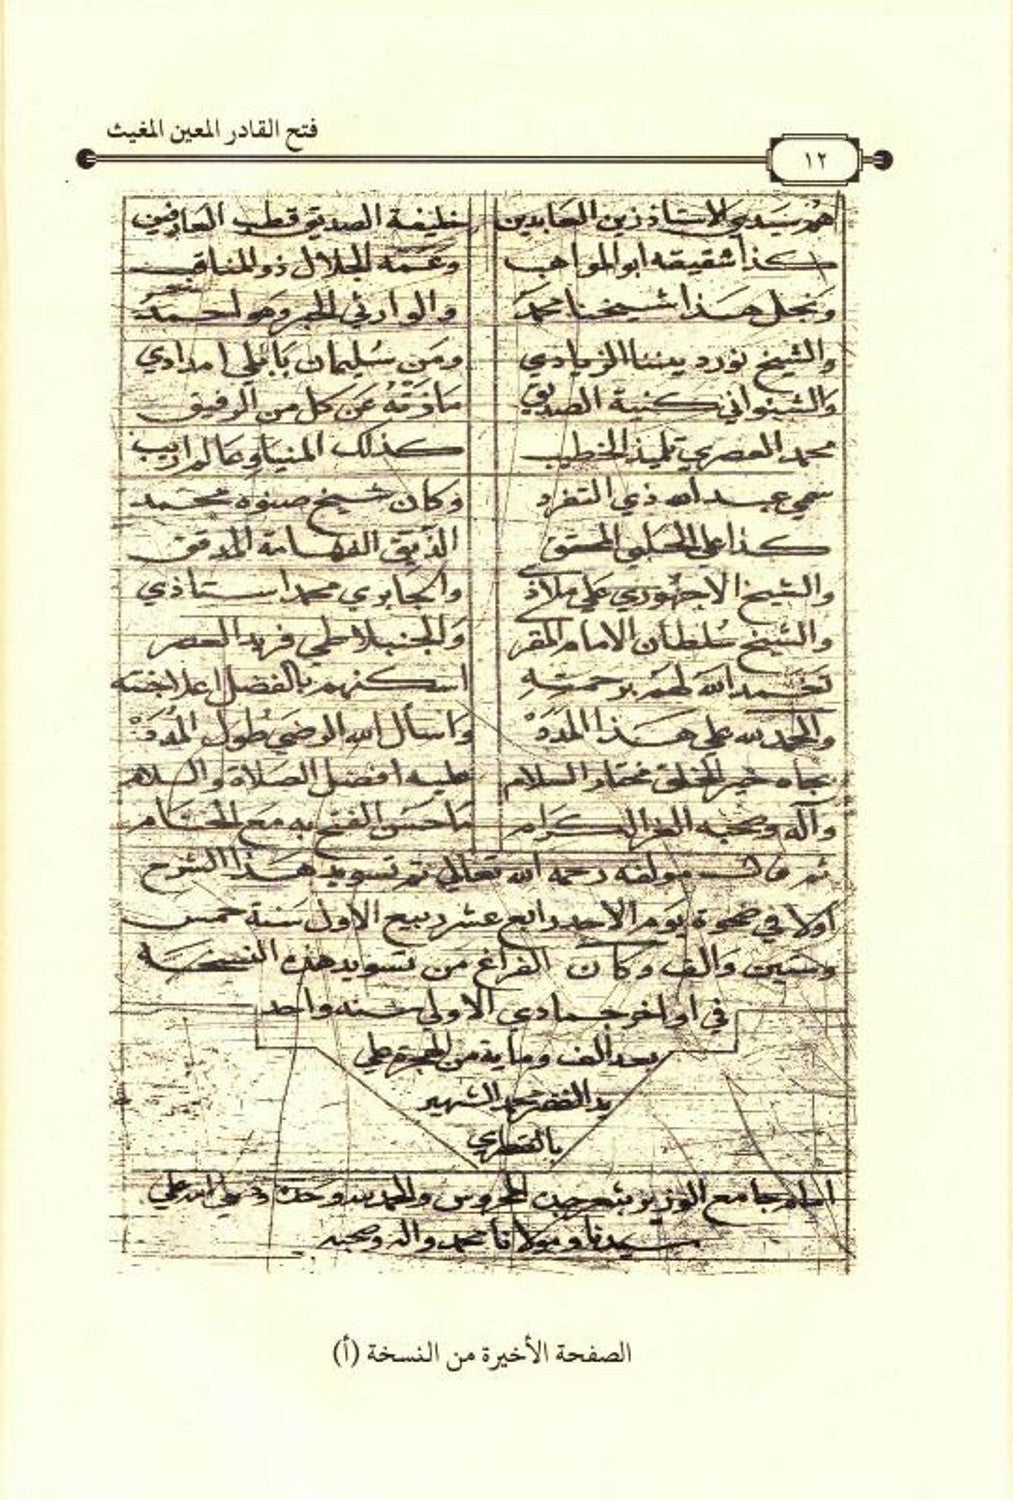 فتح القادر المعين المغيث
١٢
هم سيدي الاستاذ زين العابدين خليفة الصديق قطب العارفين
كذا شقيقه ابو المواهب وعمه الجلال ذو المناقب
ونجل هذا شيخنا محمد والوارثي الحبر وهو احمد
والشيخ نور ديننا الزيادي ومن سليمان بابلي امدادي
والشنواني كنية الصديق عن كل من الرفيق
محمد القصري تلميذ الخطيب كذلك المنياوي
سمي عبد الله ذي التفرد وكان شيخ صنوه محمد
كذا علي الحلبي المحقق الفهامة المدقق
والشيخ الاجهوري علي ملاذ والجابري محمد استاذي
والشيخ سلطان الامام المقر فريد العصر
تغمد الله لهم برحمته اسكنهم بالفضل اعلا جنته
والحمد لله علي هذا المدة واسال الله الرضي طول المدة
بجاه خير الخلق مختار السلام عليه افضل الصلاة والسلام
وآله وصحبه الغر الكرام ما حسن الفتح به مع الختام
ثم قال مولفه رحمه الله تعالي تم تسويد هذا الشرح
اولا في ضحوة يوم الاحد رابع عشر ربيع الاول سنة خمس
وستين والف وكان الفراغ من تسويد هذه النسخة
في اواخر جمادي الاولي سنة واحد
بعد الف وماية من الهجرة علي
يد الفقير محمد الشهير
امام جامع الوزير بثغر المحروس والحمد لله وحده وصلي الله علي
سيدنا ومولانا محمد واله وصحبه
الصفحة الأخيرة من النسخة (أ)